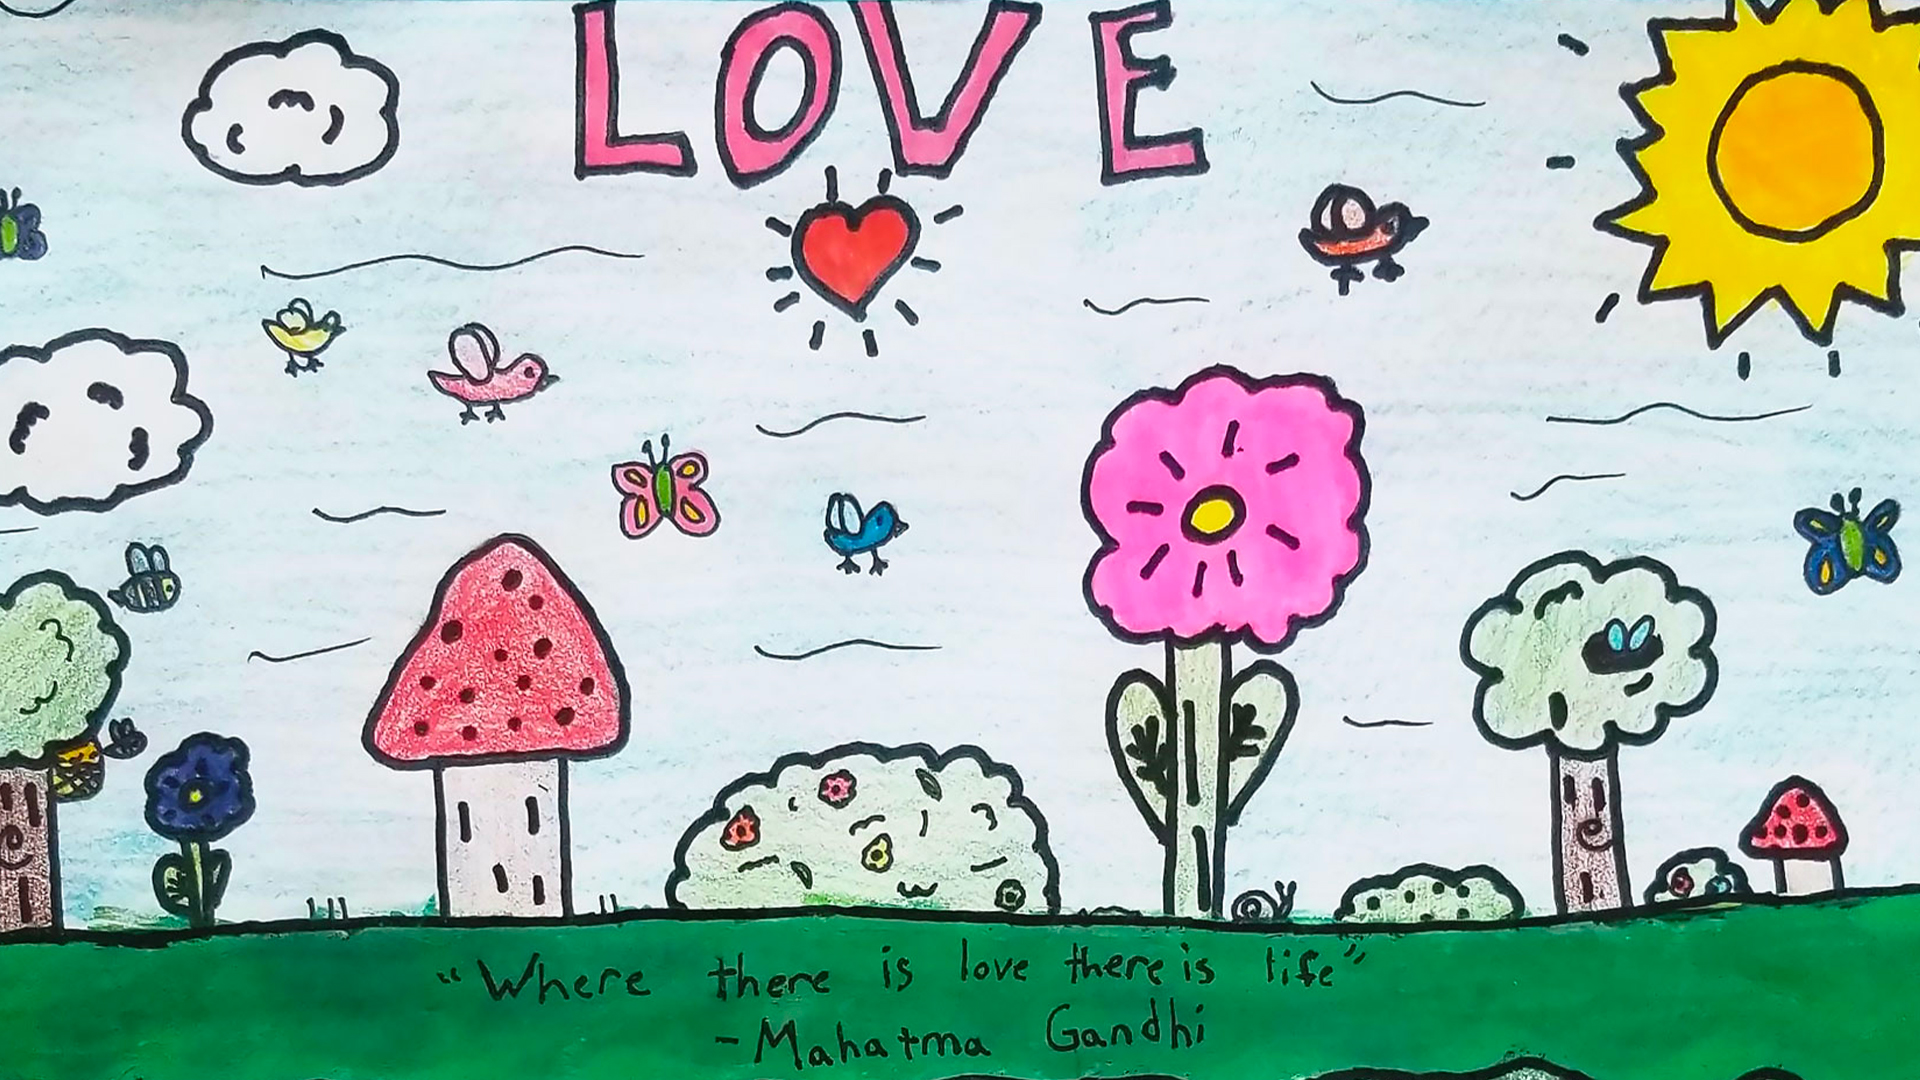 LOVE
"Where there is love there is life"
-Mahatma Gandhi